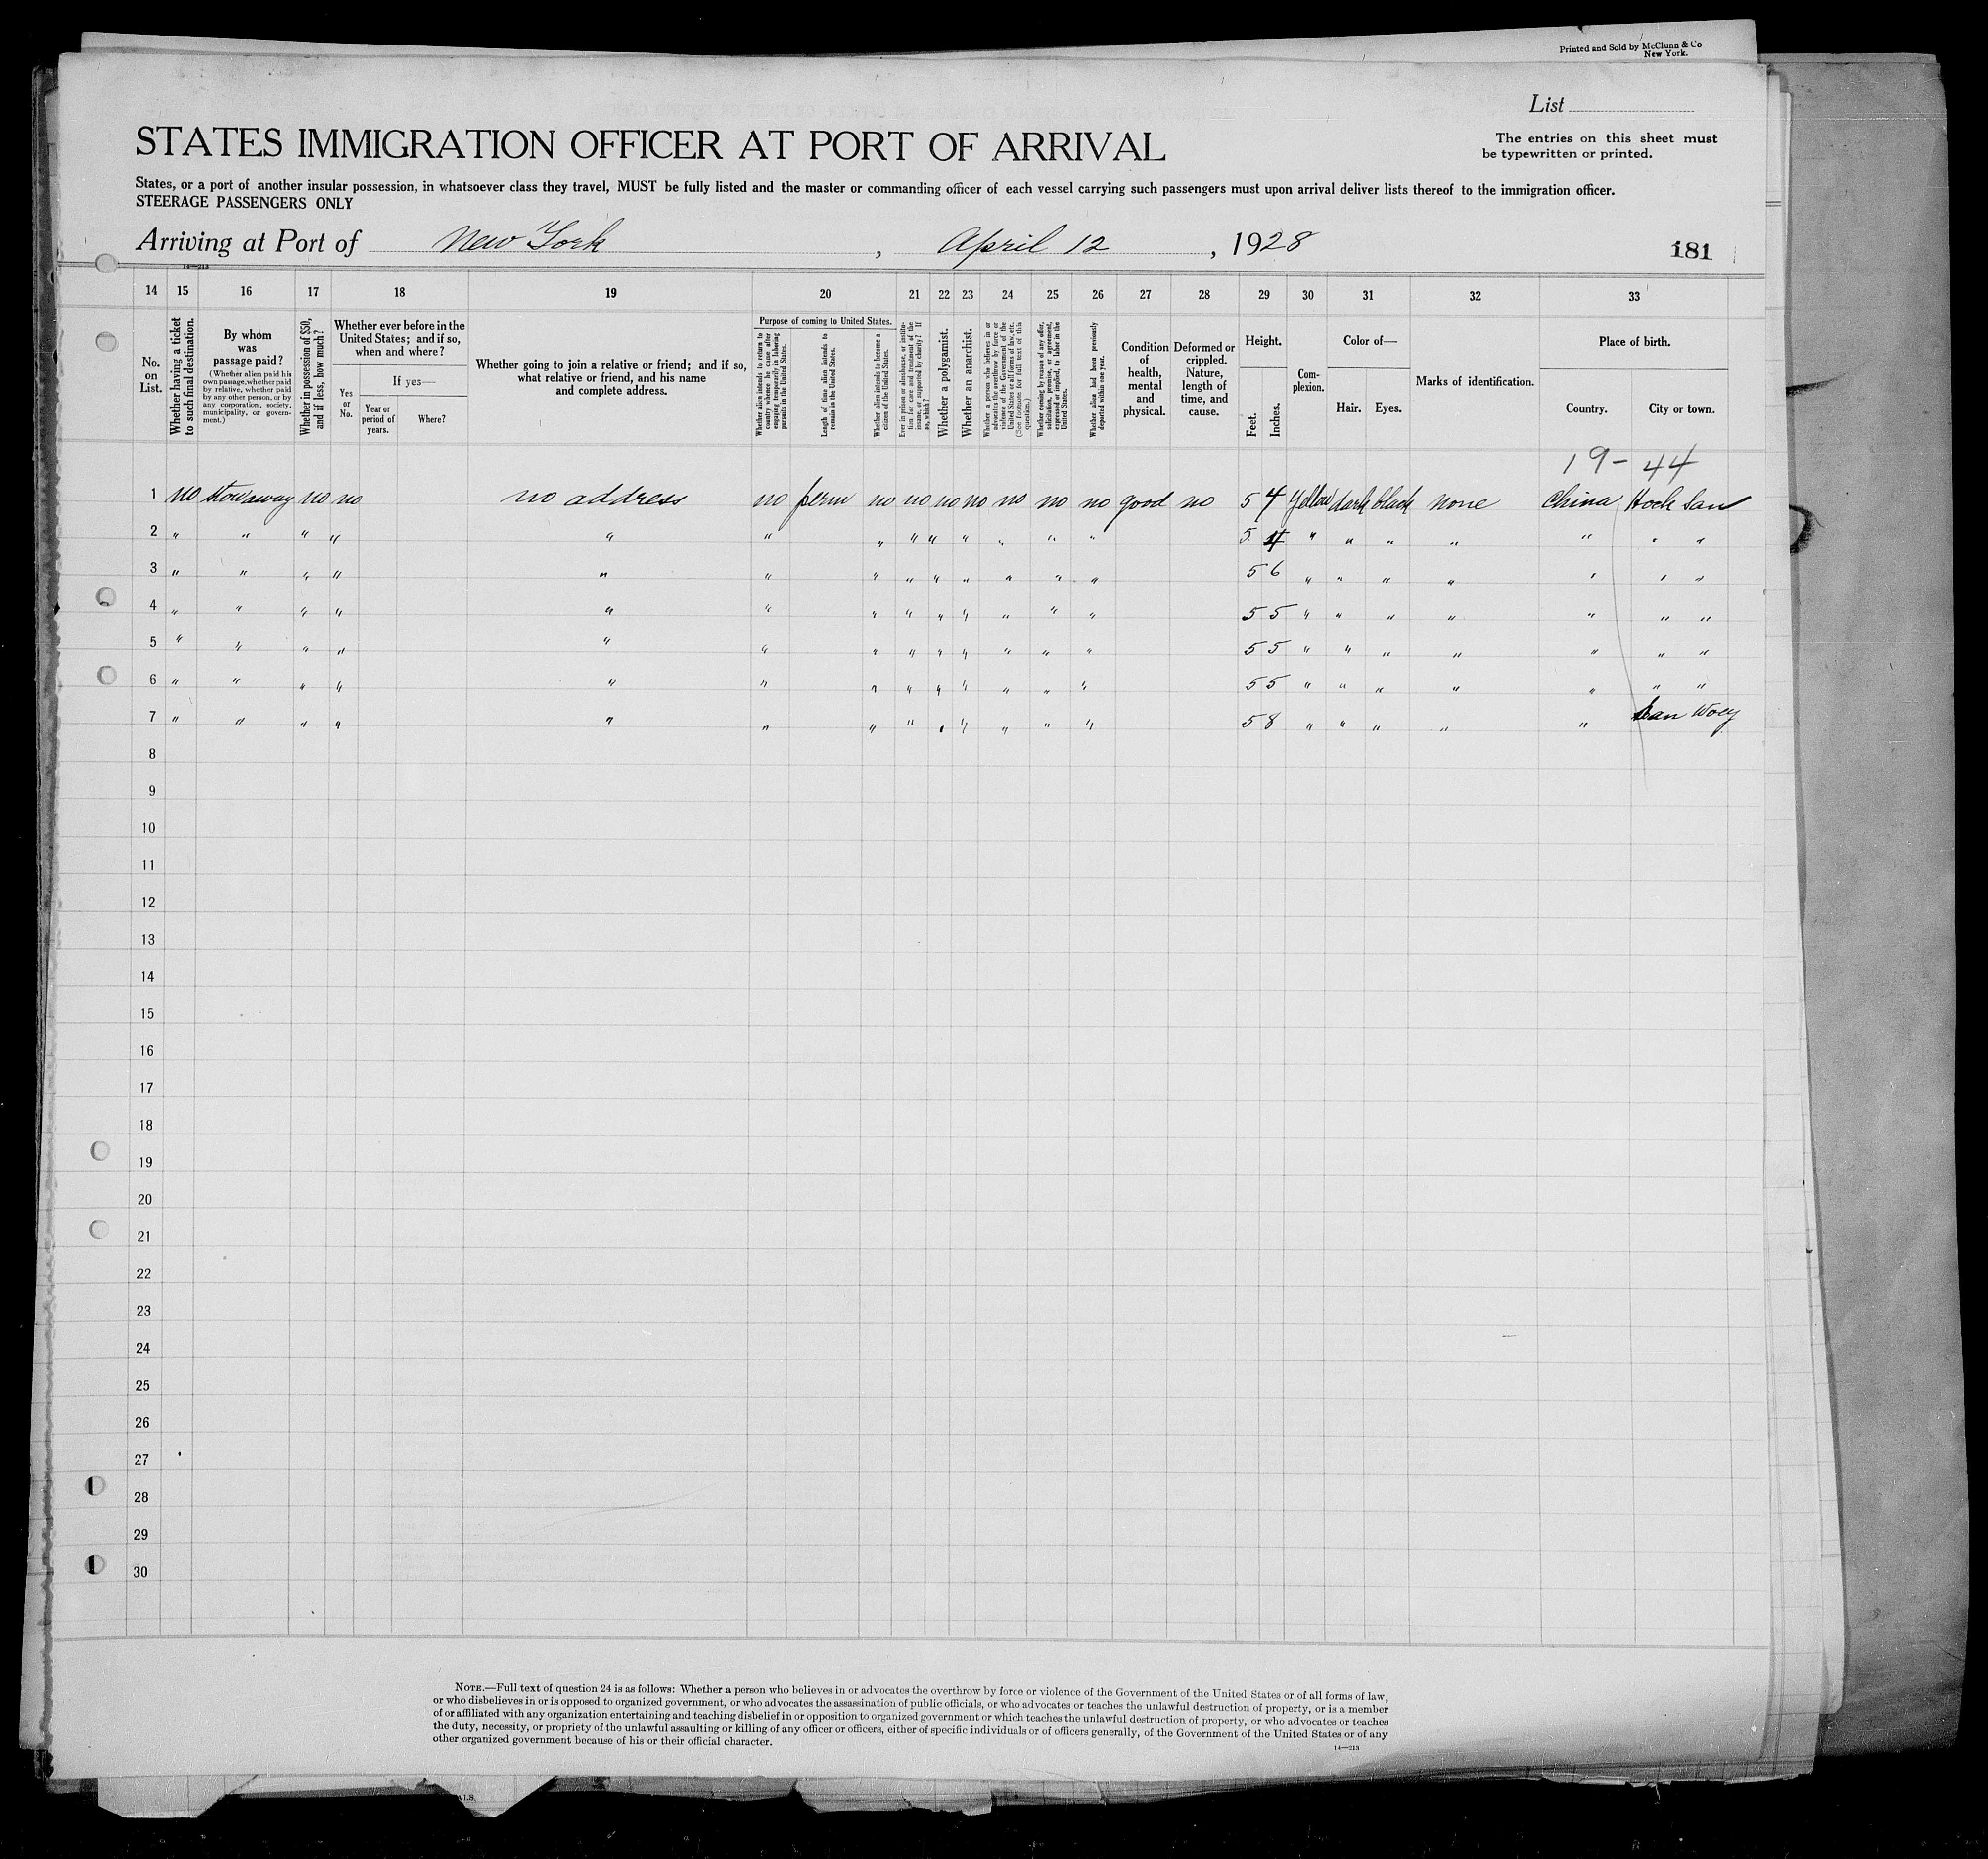 Printed and Sold by McClunn & Co
New York.
List
STATES IMMIGRATION OFFICER AT PORT OF ARRIVAL
The entries on this sheet must
be typewritten or printed.
States, or a port of another insular possession, in whatsoever class they travel, MUST be fully listed and the master or commanding officer of each vessel carrying such passengers must upon arrival deliver lists thereof to the immigration officer.
STEERAGE PASSENGERS ONLY
Arriving at Port of New York, April 12, 1928
181
14—213
14 15 16 17 18 19 20 21 22 23 24 25 26 27 28 29 30 31 32 33
No. on List.
Whether having a ticket to such final destination.
By whom was passage paid?
(Whether alien paid his own passage, whether paid by relative, whether paid by any other person, or by any corporation, society, municipality, or government.)
Whether in possession of $50, and if less, how much?
Whether ever before in the United States; and if so, when and where?
Yes or No.
If yes—
Year or period of years.
Where?
Whether going to join a relative or friend; and if so, what relative or friend, and his name and complete address.
Purpose of coming to United States.
Whether alien intends to return to country whence he came after engaging temporarily in laboring pursuits in the United States.
Length of time alien intends to remain in the United States.
Whether alien intends to become a citizen of the United States.
Ever in prison or almshouse, or institution for care and treatment of the insane, or supported by charity? If so, which?
Whether a polygamist.
Whether an anarchist.
Whether a person who believes in or advocates the overthrow by force or violence of the Government of the United States or all forms of law, etc. (See footnote for full text of this question.)
Whether coming by reason of any offer, solicitation, promise, or agreement, expressed or implied, to labor in the United States.
Whether alien had been previously deported within one year.
Condition of health, mental and physical.
Deformed or crippled. Nature, length of time, and cause.
Height.
Feet. Inches.
Complexion.
Color of—
Hair. Eyes.
Marks of identification.
Place of birth.
Country. City or town.
19- 44
1 no stowaway no no no address no perm no no no no no no no good no 5 4 yellow dark black none China Hock San
2 " " " " " " " " " " " " " 5 4 " " " " " " "
3 " " " " " " " " " " " " " 5 6 " " " " " " "
4 " " " " " " " " " " " " " 5 5 " " " " " " "
5 " " " " " " " " " " " " " 5 5 " " " " " " "
6 " " " " " " " " " " " " " 5 5 " " " " " " "
7 " " " " " " " " " " " " " 5 8 " " " " " San Woey
8
9
10
11
12
13
14
15
16
17
18
19
20
21
22
23
24
25
26
27
28
29
30
NOTE.—Full text of question 24 is as follows: Whether a person who believes in or advocates the overthrow by force or violence of the Government of the United States or of all forms of law,
or who disbelieves in or is opposed to organized government, or who advocates the assassination of public officials, or who advocates or teaches the unlawful destruction of property, or is a member
of or affiliated with any organization entertaining and teaching disbelief in or opposition to organized government or which teaches the unlawful destruction of property, or who advocates or teaches
the duty, necessity, or propriety of the unlawful assaulting or killing of any officer or officers, either of specific individuals or of officers generally, of the Government of the United States or of any
other organized government because of his or their official character.
14—213